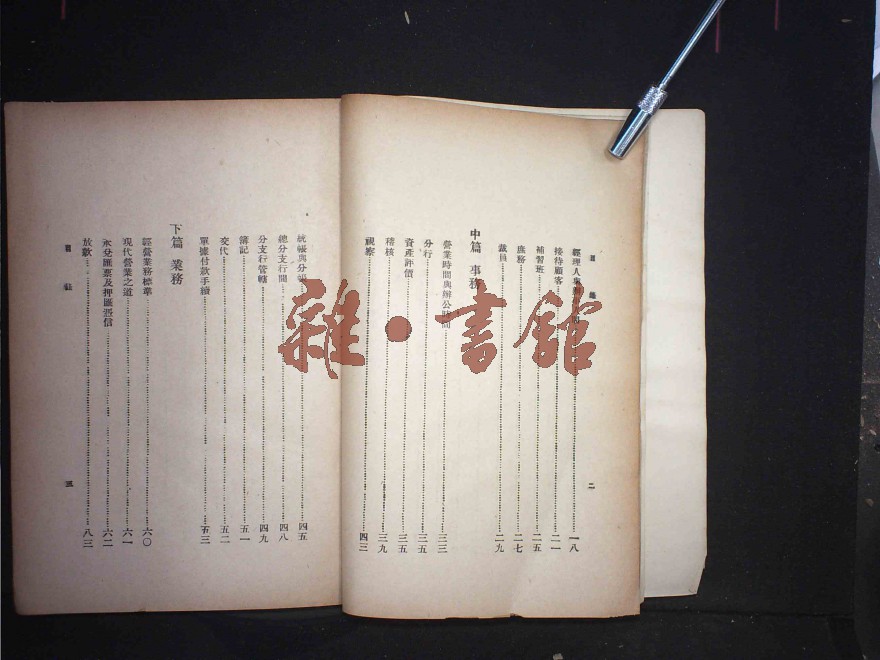 目錄
二
經理人
接待顧客 二一
補習班 二五
庶務 二七
裁員 二九
中篇 事務
營業時間與辦公時間 三三
分行 三五
資產評價 三五
稽核 三九
視察 四三
統帳與分帳 四五
總分支行間 四八
分支行管轄 四九
簿記 五一
交代 五二
單據付款手續 五三
下篇 業務
經營業務標準 六〇
現代營業之道 六一
承兌匯票及押匯憑信 六二
放款 八三
目錄
三
雜·書館